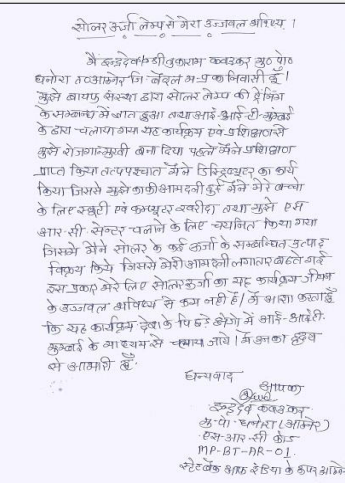 सोलर ऊर्जा लेम्प से मेरा उज्जवल भविष्य ।
मैं इन्द्रदेव श्री तुकाराम कवडकर मु० पो०
धनोरा त० आमनेर जि- बैतूल म.प्र. का निवासी हूँ ।
मुझे बायफ संस्था द्वारा सोलर लेम्प की ट्रेनिंग
के सम्बन्ध में ज्ञात हुआ तथा आई-आई-टी-मुम्बई
के द्वारा चलाया गया यह कार्यक्रम एवं प्रशिक्षण से
मुझे रोजगार मुखी बना दिया पहले मैंने प्रशिक्षण
प्राप्त किया तत्पश्चात मैंने डिस्ट्रिब्यूटर का कार्य
किया जिससे मुझे काफी आमदनी हुई मैंने मेरे बच्चो
के लिए स्कुटी एवं कम्प्युटर खरीदा तथा मुझे एस
आर.सी. सेन्टर चलाने के लिए चयनित किया गया
जिसमे मैंने सोलर के कई ऊर्जा के सम्बन्धित उत्पाद
विक्रय किये जिससे मेरी आमदनी लगातार बढते गई
इस प्रकार मेरे लिए सोलर ऊर्जा का यह कार्यक्रम जीवन
के उज्जवल भविष्य से कम नही है। मैं आशा करता हूँ
कि यह कार्यक्रम देश के पिछडे क्षेत्रो में आई-आईटी.
मुम्बई के माध्यम से चलाया जाये। मैं उनका हृदय
से आभारी हूँ.
धन्यवाद
आपका
इन्द्रदेव कवडकर
मु. पो. धनोरा (आमनेर)
एस-आर-सी कोड
MP-BT-AR-01.
स्टेट बैंक आफ इंडिया के ऊपर आमनेर